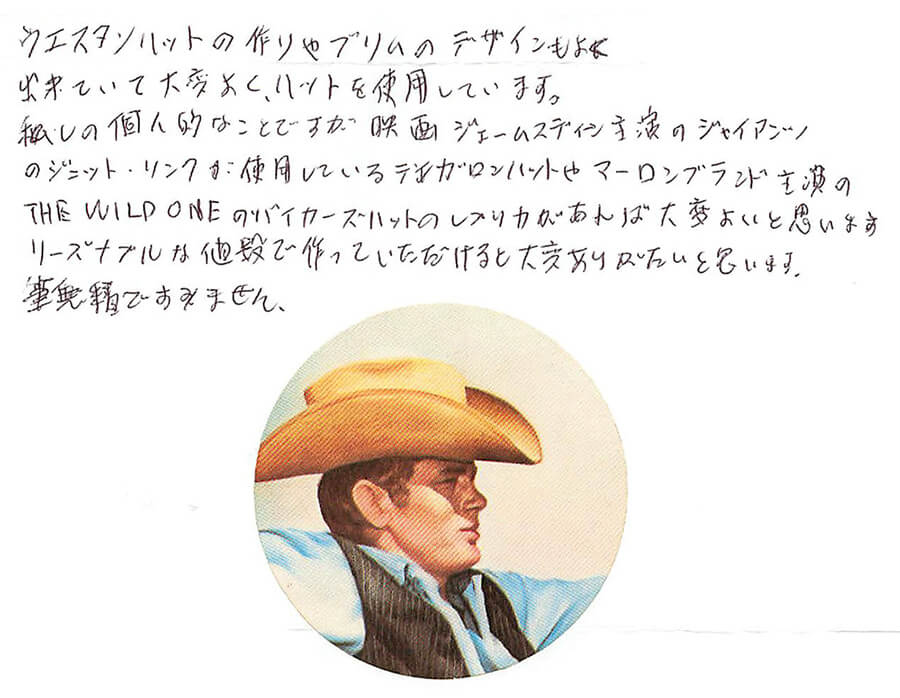 ウエスタンハットの作りやブリムのデザインもよく
出来ていて大変よく、ハットを使用しています。
私しの個人的なことですが映画ジェームスディーン主演のジャイアンツ
のジェット・リンクが使用しているテキガロンハットやマーロンブランド主演の
THE WILD ONEのバイカーズハットのレプリカがあれば大変よいと思います
リーズナブルな値段で作っていただけると大変ありがたいと思います.
筆無精ですみません、